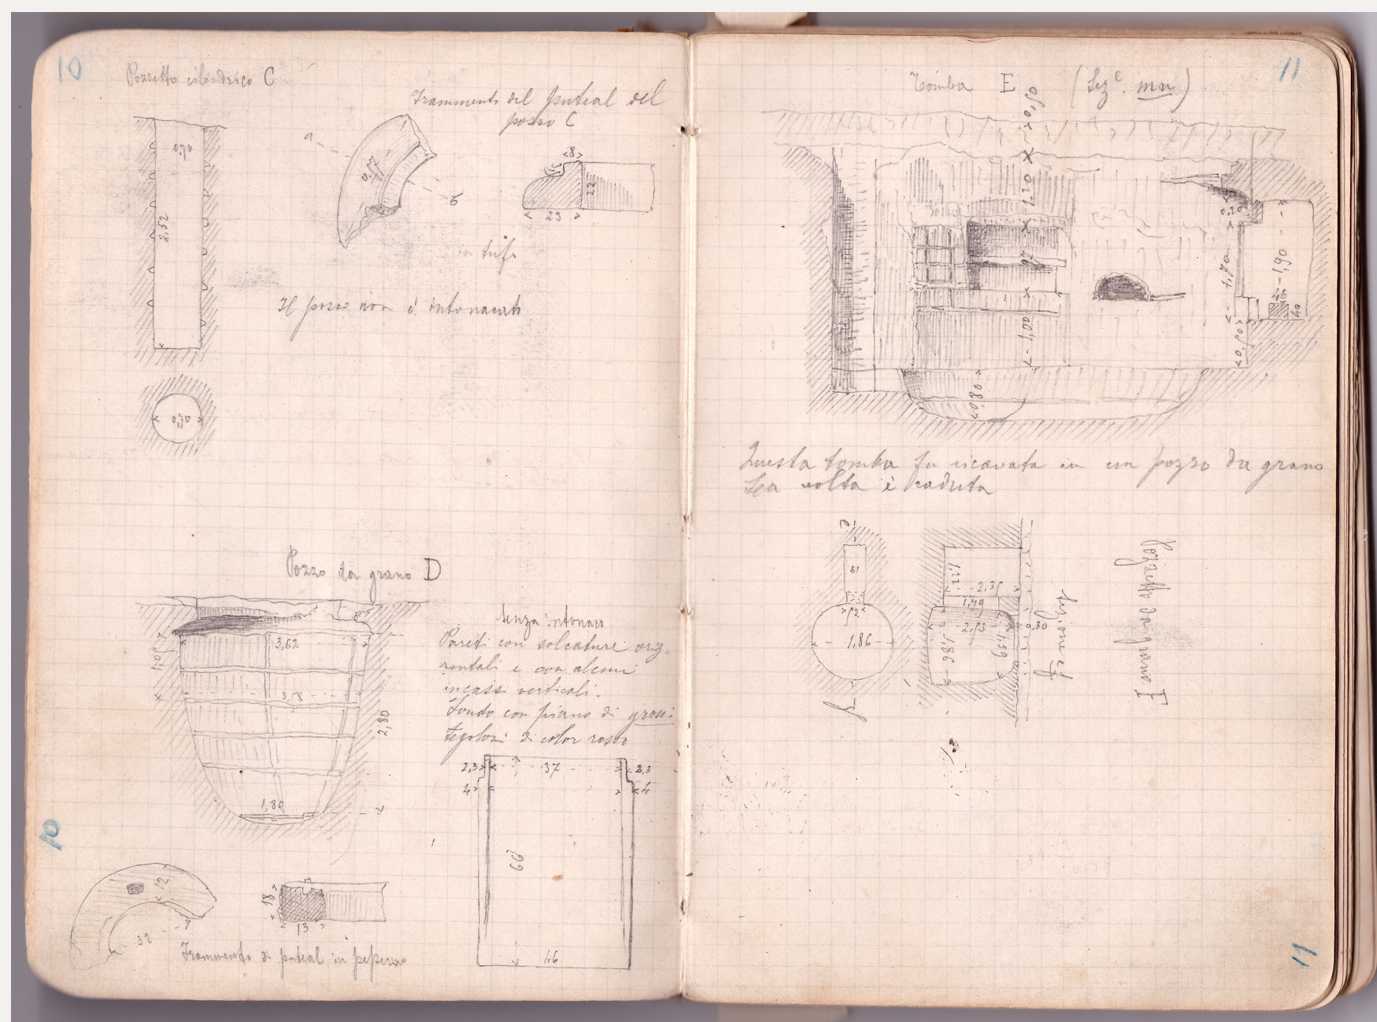 10
Pozzetto cilindrico C
Frammento del puteal del
pozzo C
a
b
0,70
2,52
8
22
23
in tufo
Il pozzo non è intonacato
0,70
Pozzo da grano D
3,62
2,80
1,80
Senza intonaco
Pareti con solcature oriz-
zontali e con alcuni
incassi verticali.
Fondo con piano di grossi
tegoloni di color rosso
2,3
37
2,3
4
4
60
46
12
32
18
13
Frammento di puteal in peperino
10
11
Tomba E (Sez.e mn)
0,20
1,70
1,90
40
1,00
0,80
Questa tomba fu ricavata in un pozzo da grano
La volta è caduta
1,86
1,86
2,53
1,39
0,30
Sezione
Pozzetto da grano F
11